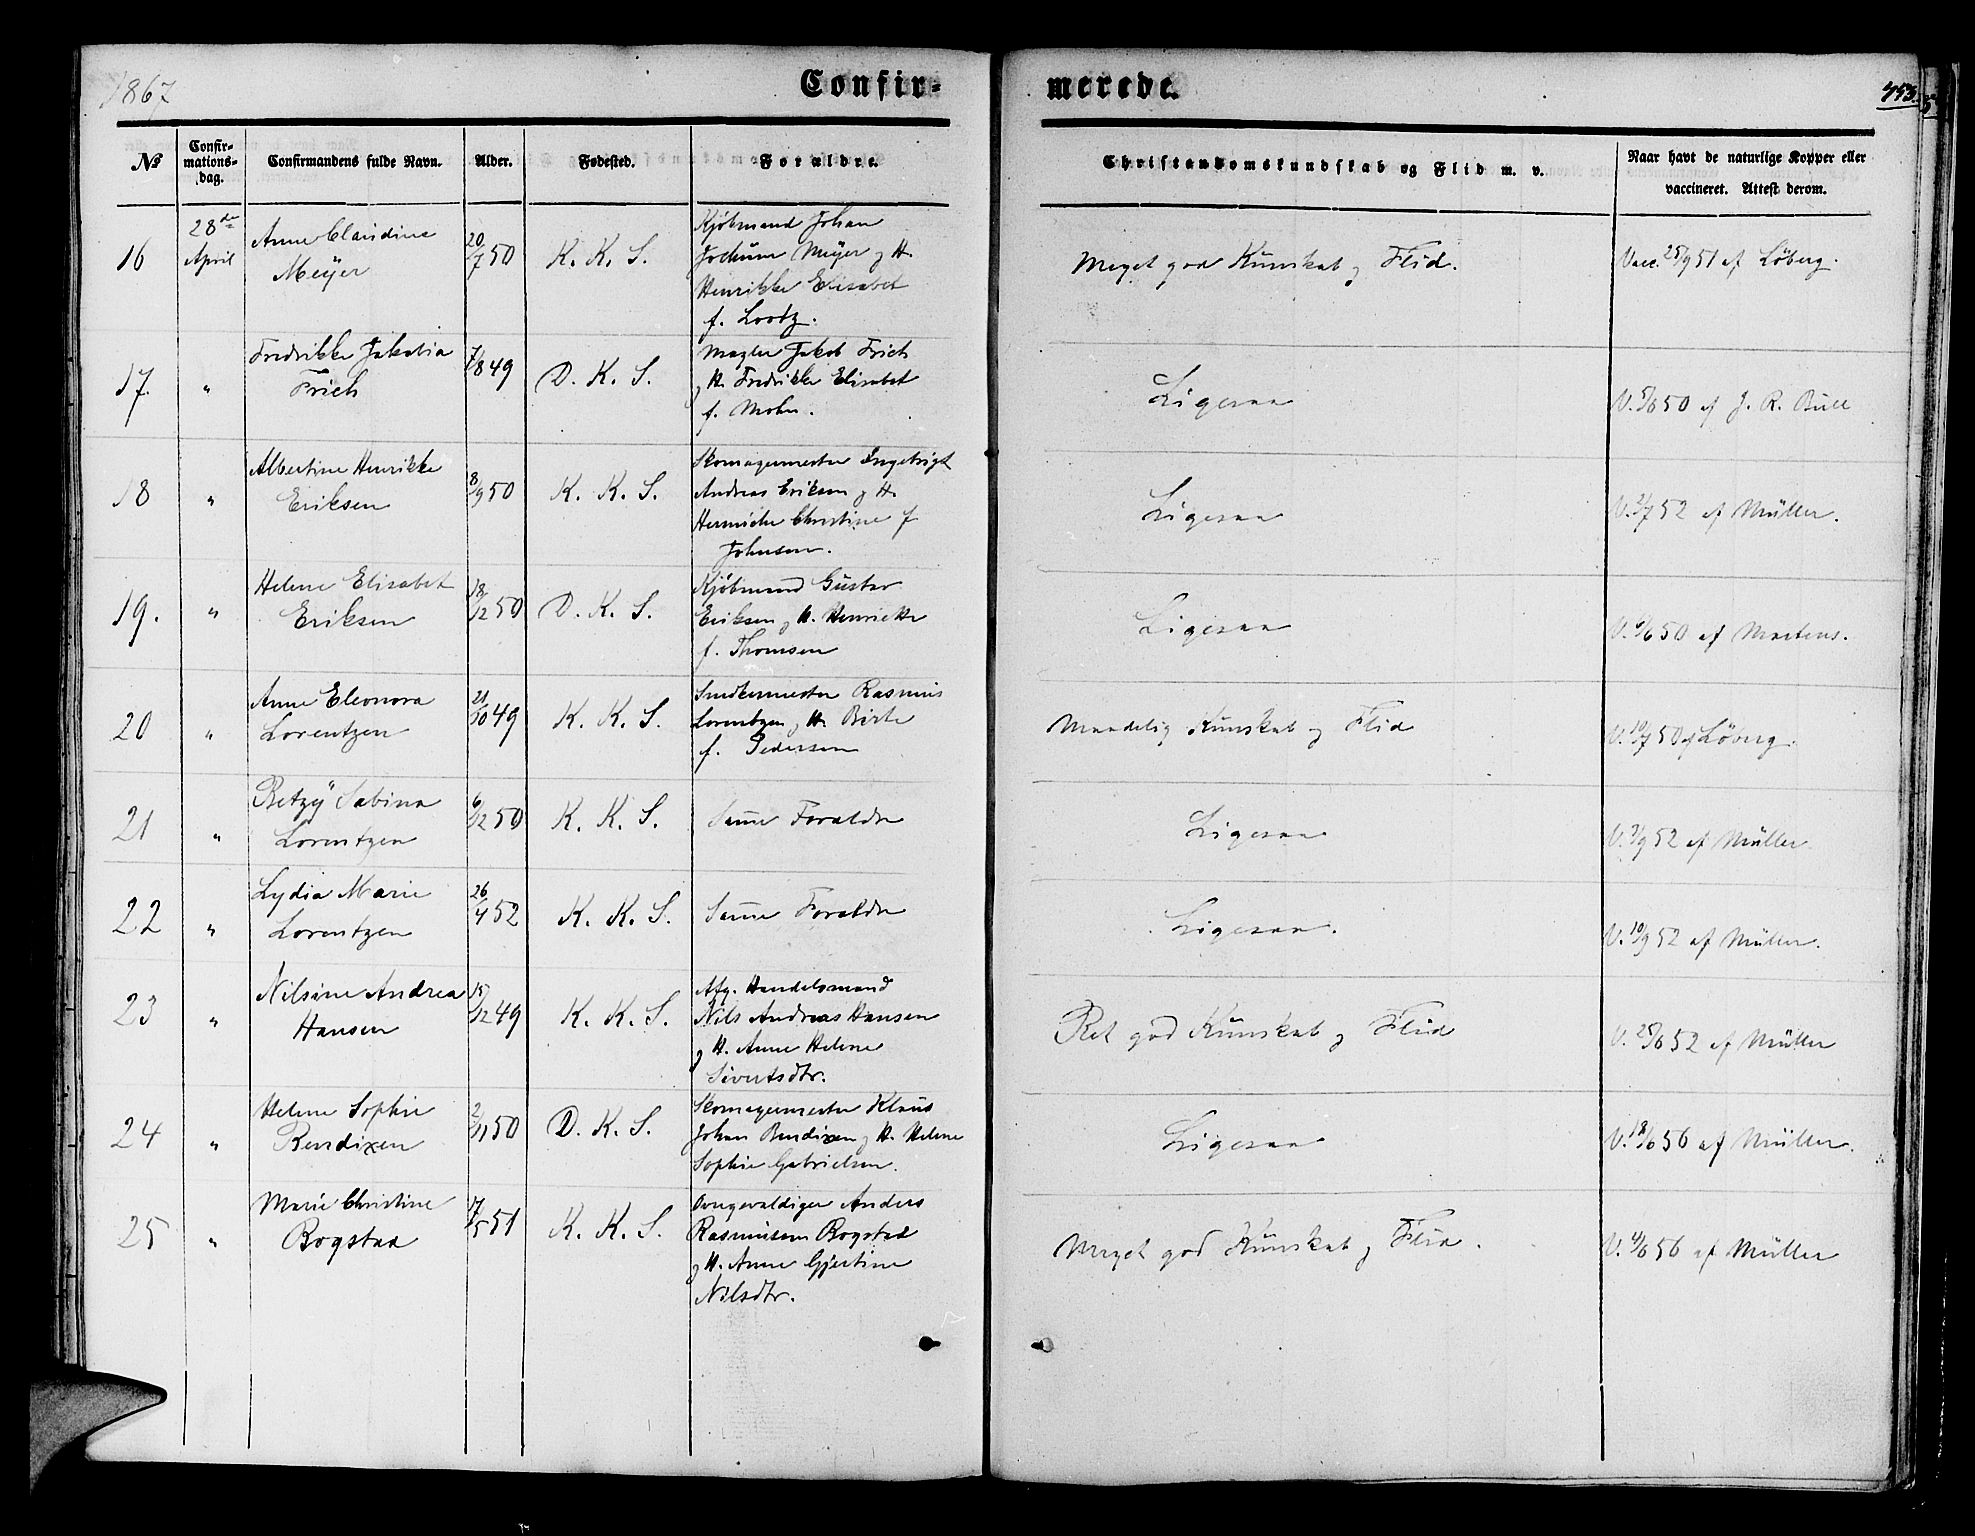 1867
Confir-
merede.
453.
No
Confir-
mations-
dag.
Confirmandens fulde Navn.
Alder.
Fødested.
Forældre.
Christendomskundskab og Flid m. v.
Naar havt de naturlige Kopper eller
vaccineret. Attest derom.
16
28de
April
Anne Claudine
Meÿer
20/7 50
K. K. S.
Kjøbmand Johan
Jochum Meÿer og H.
Henrikke Elisabet
f. Lootz.
Meget god Kunskab og Flid.
Vacc. 25/9 51 af Löberg.
17.
"
Fredrikke Jakobia
Frich
7/8 49
D. K. S.
Mægler Jakob Frich
og H. Fredrikke Elisabet
f. Mohn.
Ligesaa
V. 5/6 50 af J. R. Bull
18
"
Albertine Henrikke
Eriksen
8/9 50
K. K. S.
Skomagermester Ingebrigt
Andreas Eriksen og H.
Christine f
Johnsen.
Ligesaa
V. 2/7 52 af Müller.
19.
"
Helene Elisabet
Eriksen
18/12 50
D. K. S.
Kjøbmand Gustav
Eriksen og H. Henriette
f. Thomsen
Ligesaa
V. 6/6 50 af Martens.
20
"
Anne Eleonora
Lorentzen
21/10 49
K. K. S.
Snedkermester Rasmus
Lorentzen og H. Birte
f. Pedersen
Maadelig Kunskab og Flid
V. 10/7 50 af Löberg.
21
"
Betzÿ Sabina
Lorentzen
6/12 50
K. K. S.
Samme Forældre
Ligesaa
V. 3/9 52 af Müller.
22
"
Lydia Marie
Lorentzen
26/4 52
K. K. S.
Samme Forældre
Ligesaa.
V. 10/9 52 af Müller.
23
"
Nilsine Andrea
Hansen
15/12 49
K. K. S.
Afg. Handelsmand
Nils Andreas Hansen
og H. Anne Helene
Sivertsdtr.
Ret god Kunskab og Flid
V. 25/6 52 af Müller
24
"
Helene Sophie
Bendixen
2/11 50
D. K. S.
Skomagermester Klaus
Johan Bendixen og H. Helene
Sophie Gabrielsen.
Ligesaa
V. 18/6 56 af Müller.
25
"
Marie Christine
Bogstad
17/5 51
K. K. S.
Anders
Rasmusen Bogstad
og H. Anne Gjertine
Nilsdtr.
Meget god Kunskab og Flid.
V. 4/6 56 af Müller